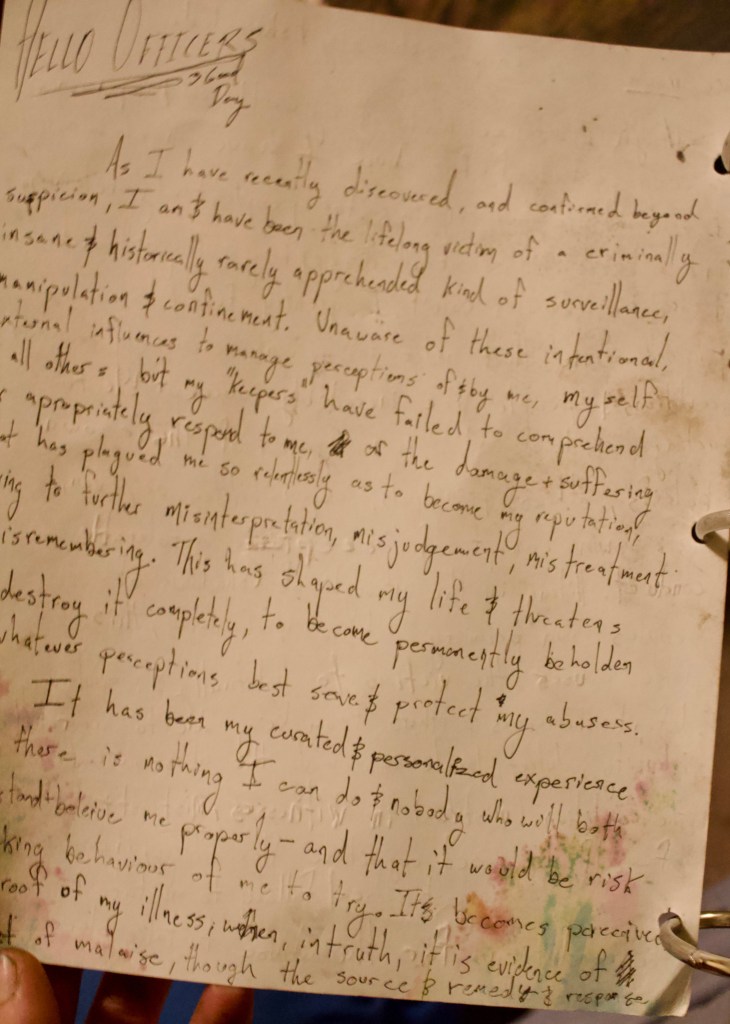 HELLO OFFICERS
→ Good
Day
As I have recently discovered, and confirmed beyond
suspicion, I am & have been the lifelong victim of a criminally
insane & historically rarely apprehended kind of surveillance,
manipulation & confinement. Unaware of these intentional,
external influences to manage perceptions of & by me, myself
all others but my "keepers" have failed to comprehend
apropriately respond to me, or the damage + suffering
has plagued me so relentlessly as to become my reputation,
to further misinterpretation, misjudgement, mistreatment
isremembering. This has shaped my life & threatens
destroy it completely, to become permanently beholden
whatever perceptions best serve & protect my abusers.
It has been my curated & personalized experience
there is nothing I can do & nobody who will both
stand + beleive me properly — and that it would be risk
king behaviour of me to try. Its becomes perceived
roof of my illness, when, in truth, it is evidence of
of malaise, though the source & remedy & response